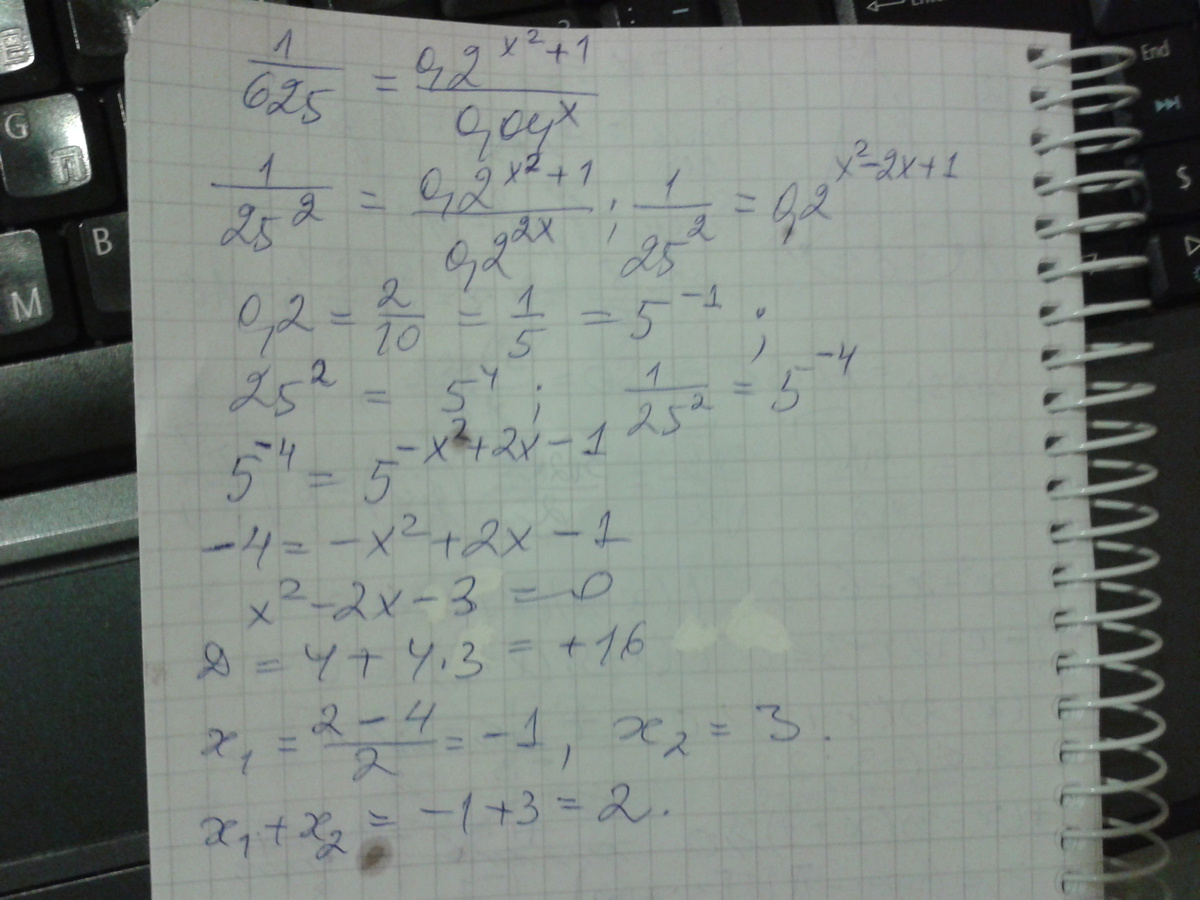 1/625 = 0,2^(x²+1)/0,04^x
1/25² = 0,2^(x²+1)/0,2^(2x) ; 1/25² = 0,2^(x²-2x+1)
0,2 = 2/10 = 1/5 = 5^(-1) ;
25² = 5⁴ ; 1/25² = 5^(-4)
5^(-4) = 5^(-x²+2x-1)
-4 = -x²+2x-1
x²-2x-3 = 0
D = 4+4·3 = +16
x₁ = (2-4)/2 = -1, x₂ = 3.
x₁+x₂ = -1+3 = 2.
End
G
П
B
M
S